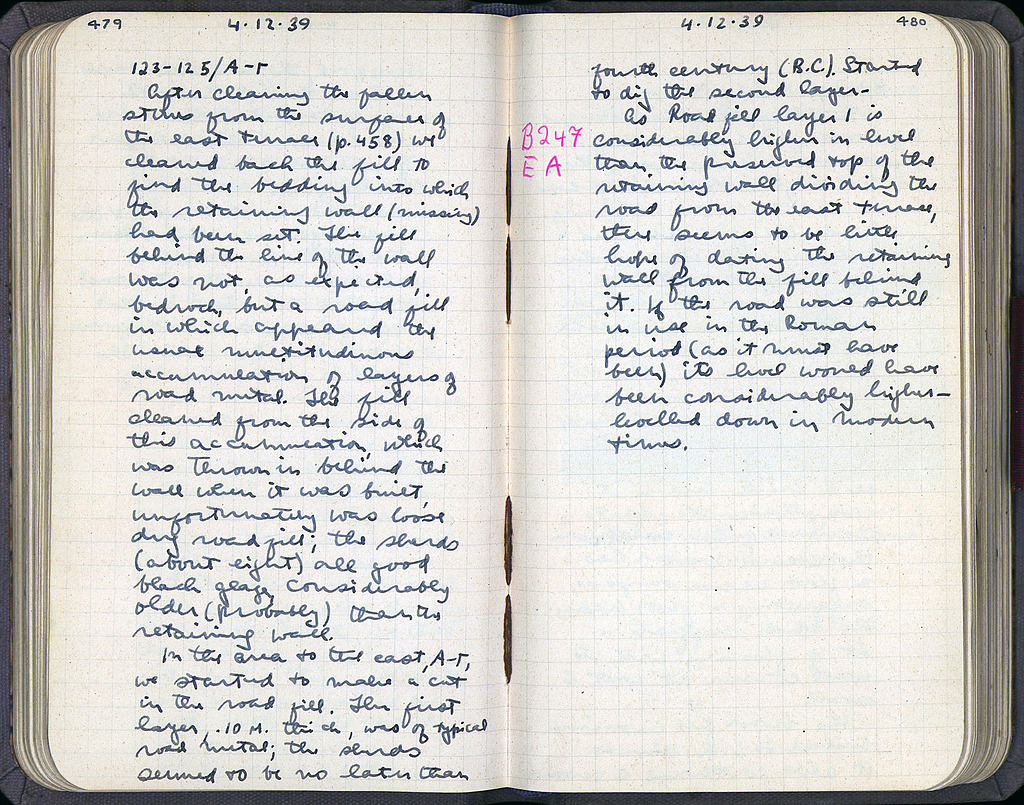 479
4.12.39
123-125/A-Γ
After cleaning the fallen
stones from the surface of
the east terrace (p. 458) we
cleaned back the fill to
find the bedding into which
the retaining wall (missing)
had been set. The fill
behind the line of the wall
was not, as expected,
bedrock, but a road fill
in which appeared the
usual multitudinous
accumulation of layers of
road metal. The fill
cleaned from the side of
this accumulation, which
was thrown in behind the
wall when it was built,
unfortunately was loose
dug road fill; the sherds
(about eight) all good
black glaze, considerably
older (probably) than the
retaining wall.
In the area to the east, A-Γ,
we started to make a cut
in the road fill. The first
layer, .10 M. thick, was of typical
road metal; the sherds
seemed to be no later than
4.12.39
480
fourth century (B.C.). Started
to dig the second layer-
As Road fill layer 1 is
B247
EA
considerably higher in level
than the preserved top of the
retaining wall dividing the
road from the east terrace,
there seems to be little
hope of dating the retaining
wall from the fill behind
it. If the road was still
in use in the Roman
period (as it must have
been) its level would have
been considerably higher-
levelled down in modern
times.